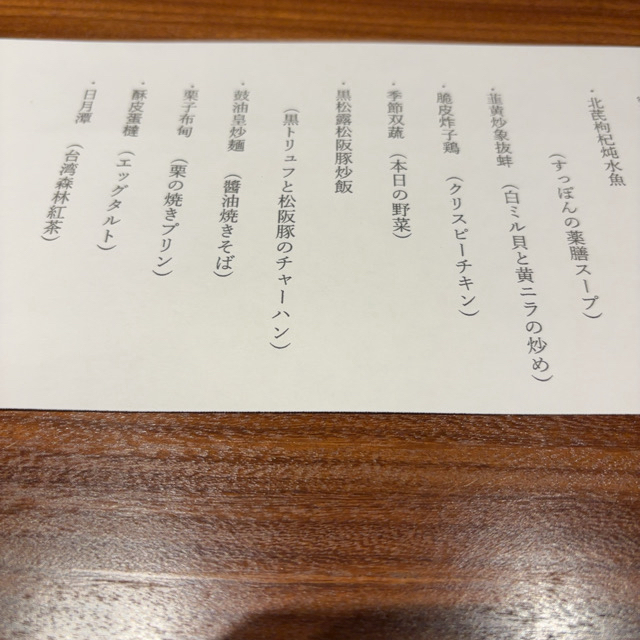 ・北芪枸杞炖水魚
（すっぽんの薬膳スープ）
・韭黄炒象抜蚌（白ミル貝と黄ニラの炒め）
・脆皮炸子鶏（クリスピーチキン）
・季節双蔬（本日の野菜）
・黒松露松阪豚炒飯
（黒トリュフと松阪豚のチャーハン）
・豉油皇炒麺（醬油焼きそば）
・栗子布甸（栗の焼きプリン）
・酥皮蛋撻（エッグタルト）
・日月潭（台湾森林紅茶）